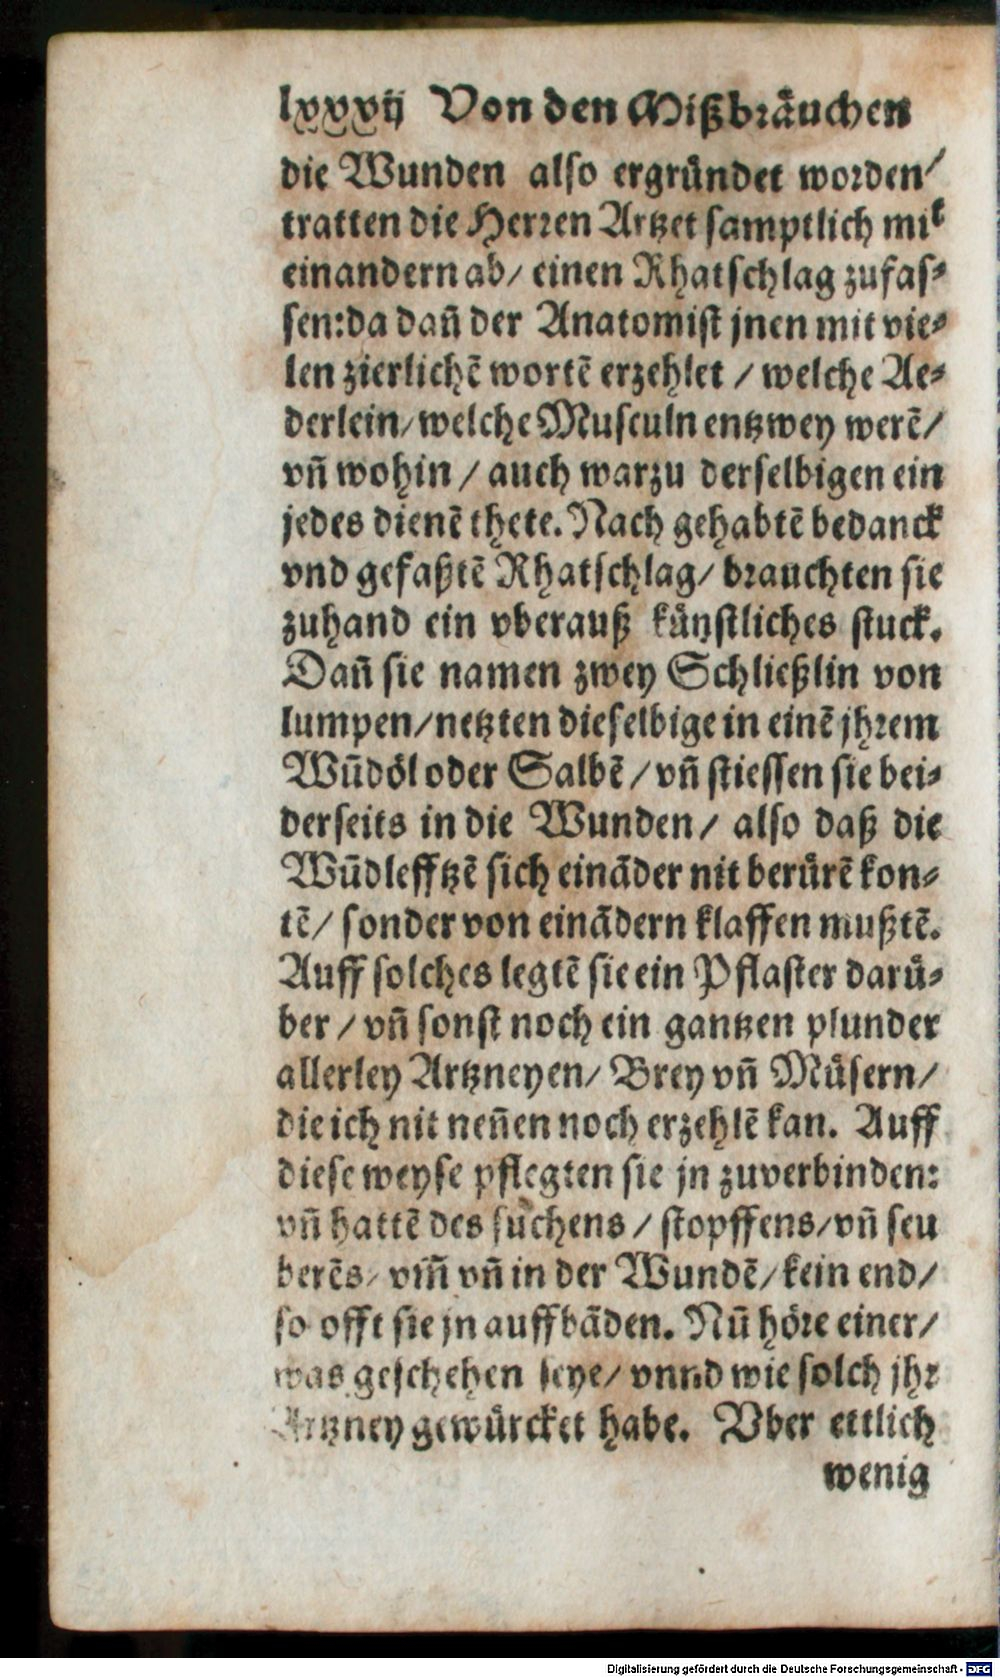 lxxxij Von den Mißbraͤuchen
die Wunden also ergruͤndet worden/
tratten die Herren Artzet samptlich mit
einandern ab/ einen Rhatschlag zufas⸗
sen: da dañ der Anatomist jnen mit vie⸗
len zierlichē wortē erzehlet / welche Ae⸗
derlein/ welche Musculn entzwey werē/
vñ wohin / auch warzu derselbigen ein
jedes dienē thete. Nach gehabtē bedanck
vnd gefaßtē Rhatschlag/ brauchten sie
zuhand ein vberauß kuͤnstliches stuck.
Dañ sie namen zwey Schließlin von
lumpen/ netzten dieselbige in einē jhrem
Wūdoͤl oder Salbē / vñ stiessen sie bei⸗
derseits in die Wunden/ also daß die
Wūdlefftzē sich eināder nit beruͤrē kon⸗
tē/ sonder von einādern klaffen mußtē.
Auff solches legtē sie ein Pflaster daruͤ⸗
ber / vñ sonst noch ein gantzen plunder
allerley Artzneyen/ Brey vñ Muͤsern/
die ich nit neñen noch erzehlē kan. Auff
diese weyse pflegten sie jn zuverbinden:
vñ hattē des suchens / stopffens/ vñ seu
berēs/ vm̃ vñ in der Wundē/ kein end/
so offt sie jn auffbāden. Nū hoͤre einer/
was geschehen seye/ vnnd wie solch jhr
Artzney gewuͤrcket habe. Vber ettlich
wenig
Digitalisierung gefördert durch die Deutsche Forschungsgemeinschaft - DFG